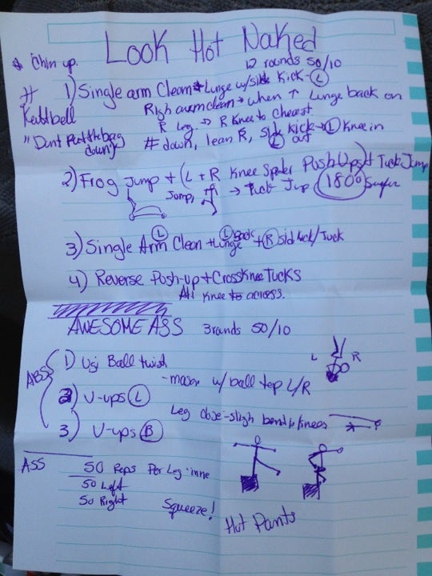 Look Hot Naked
* Chin up.
12 rounds 50/10
# 1) Single arm Clean + Lunge w/side Kick - (L)
Kettlbell
Righ arm clean → when ↑ lunge back on
R leg → R Knee to Chest.
"Dont Put the bag down"
# down, lean R, side kick → (L) Knee in
L out
2) Frog Jump + (L + R Knee Spider Push Ups) + Tuck Jump
Jump,
→ Tuck Jup (180°)
3) Single Arm (L) Clean + (L) back lunge + (R) sid kick/Tuck
4) Reverse Push-up + Cross Knee Tucks
Alt Knee to across.
AWESOME ASS 3 rands 50/10
ABSS
1) Usi Ball twish
- w/ ball top L/R
L R
2) V-ups (L)
Leg - sligh bend knees
3) V-ups (R)
ASS
50 Reps Per Leg
50 Left
50 Right
Squeeze!
Hot Pants